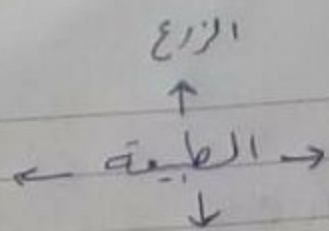 الزرع
الطبيعة